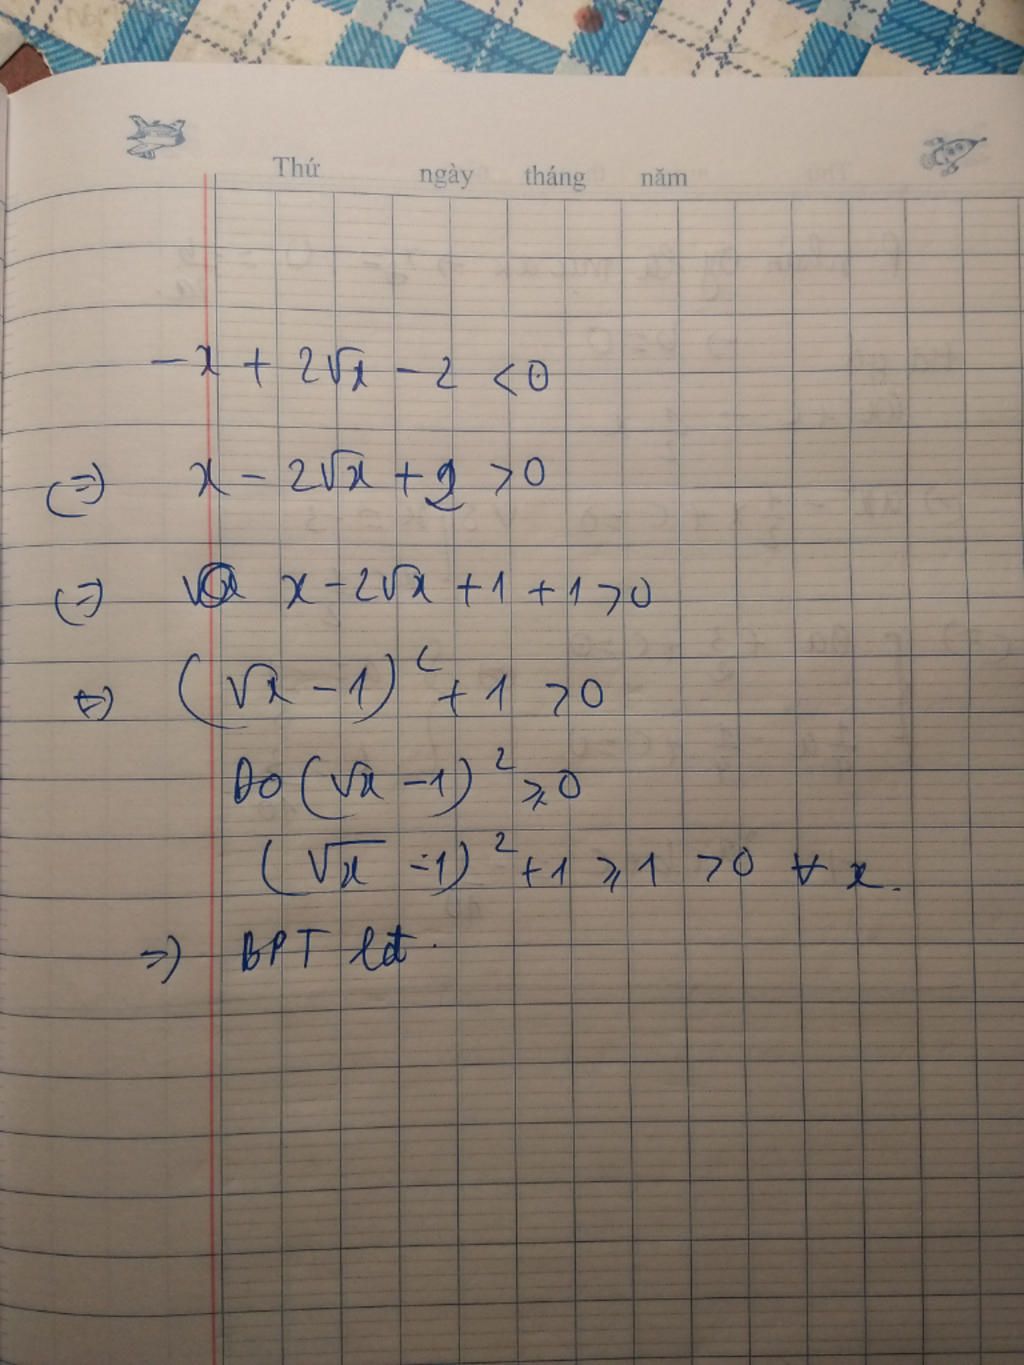 Thứ ngày tháng năm
-x + 2√x - 2 < 0
(=) x - 2√x + 2 > 0
(=) x - 2√x + 1 + 1 > 0
(=) (√x - 1)² + 1 > 0
Do (√x - 1)² ≥ 0
(√x - 1)² + 1 ≥ 1 > 0 ∀ x.
=) BPT lđ.